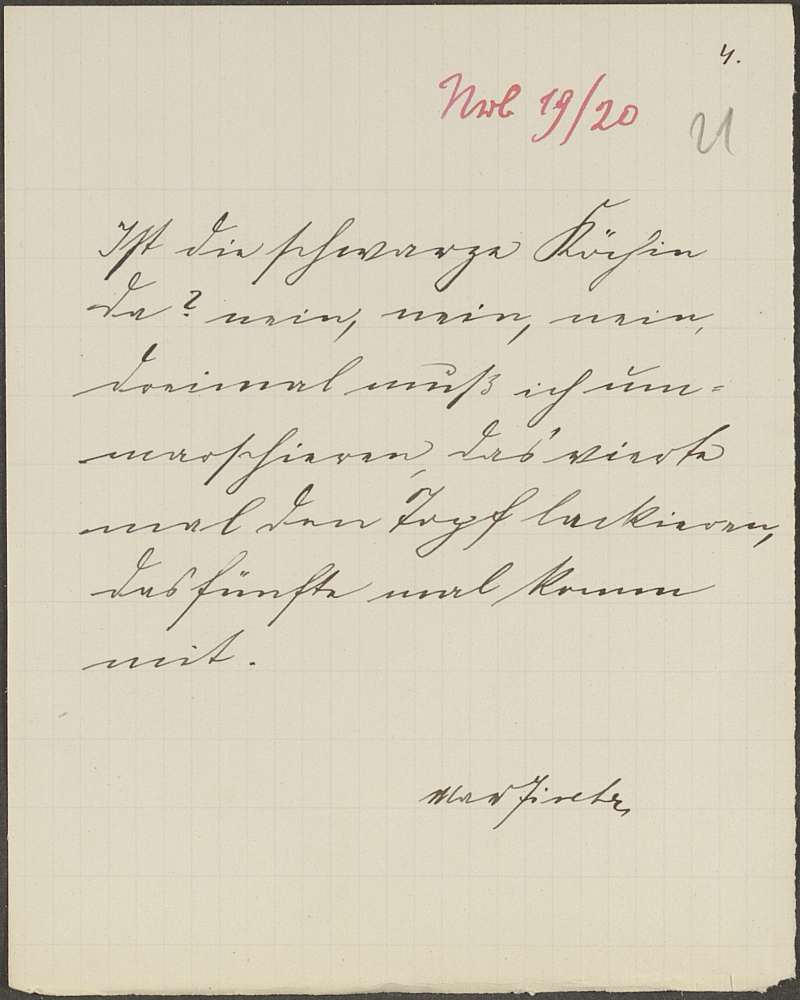 4.
Nrb 19/20
21
Ist die schwarze Köchin
da? nein, nein, nein,
dreimal muß ich um-
marschieren, das vierte
mal den Topf lackieren,
das fünfte mal komm
mit.